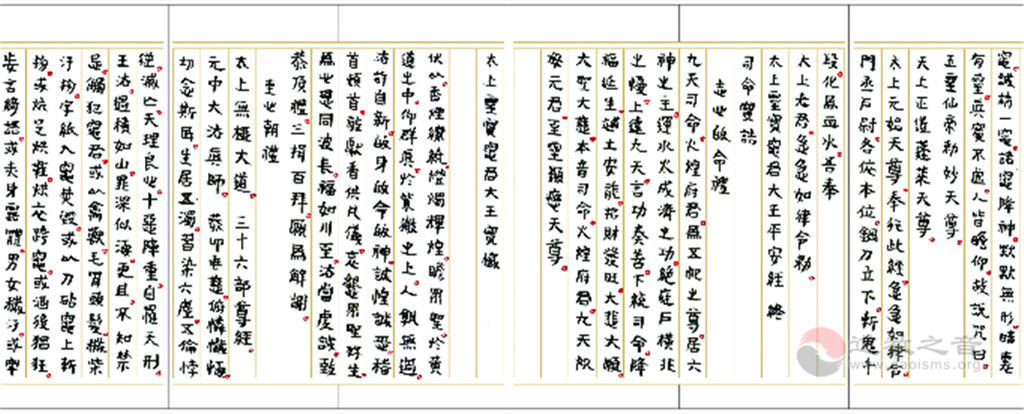 有靈真靈不虛人皆瞻仰故說咒曰
五靈仙帝勅妙天尊
天上正道蓬萊天尊
太上元始天尊奉行此經急急如律令
門丞戶尉各依本位鋼刀立下斬鬼千
段化爲血水善奉
太上老君急急如律令勅
太上靈寶竈君大王平安經 終
司命靈誥
志心皈命禮
九天司命火煌府君爲五祀之尊居六
神之主運水火成濟之功絶庭戶橫兆
之擾上達九天言功奏善下統司命降
福延生鎮土安龍招財發旺大悲大願
大聖大慈本音司命火煌府君九天殷
察元君至靈報應天尊
太上靈寶竈君大王寶懺
伏以香煙繚繞燈燭輝煌瞻衆聖於黄
道之中仰群真於紫微之上人孰無過
法許自新皈身皈命皈神誠惶誠恐稽
首頓首雖獻香供凡儀哀懇衆聖好生
爲世恩同波長福如川至法當虔誠致
恭頂禮三捐百拜願爲解謝
至心朝禮
太上無極大道 三十六部尊經
元中大法真師 恭叩垂慈俯憐懺悔
切念斯民生居五濁習染六塵五倫悖
逆滅亡天理良心十惡降重自罹天刑
王法過積如山罪深似海更且不知禁
忌觸犯竈君或以禽獸毛骨頭髮機柴
汙穢字紙入竈焚毀或以刀砧竈上斬
或烘足烘鞋烘衣跨竈或酒後猖狂
妄言綺語或夫身露體男女穢汙或
道教之音
www.daoisms.org